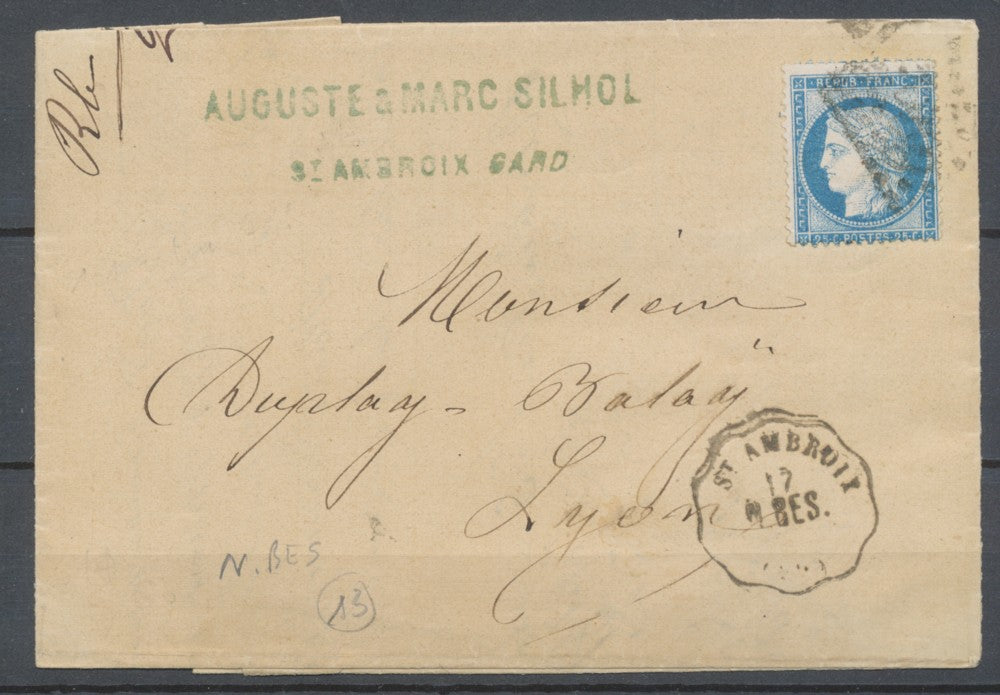 Rb
AUGUSTE & MARC SILHOL
ST AMBROIX GARD
REPUB. FRANC.
25 C. POSTES 25 C.
Monsieur
Duplay - Balaÿ
Lyon
ST AMBROIX
17
N. BES.
N. BES
13